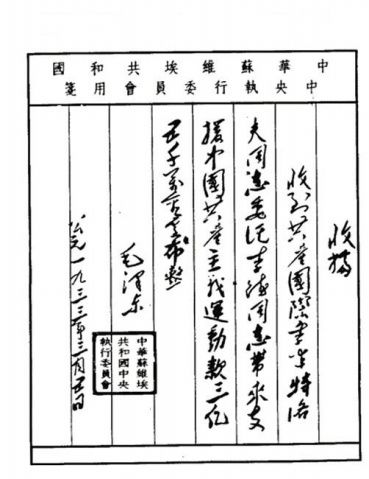 中華蘇維埃共和國
中央執行委員會用箋
收據
收到共產國際書特洛
夫同志委托李德同志帶來支
援中國共產主義運動款三億
五千萬布整
毛澤東
公元一九三三年三月五日
中華蘇維埃
共和國中央
執行委員會